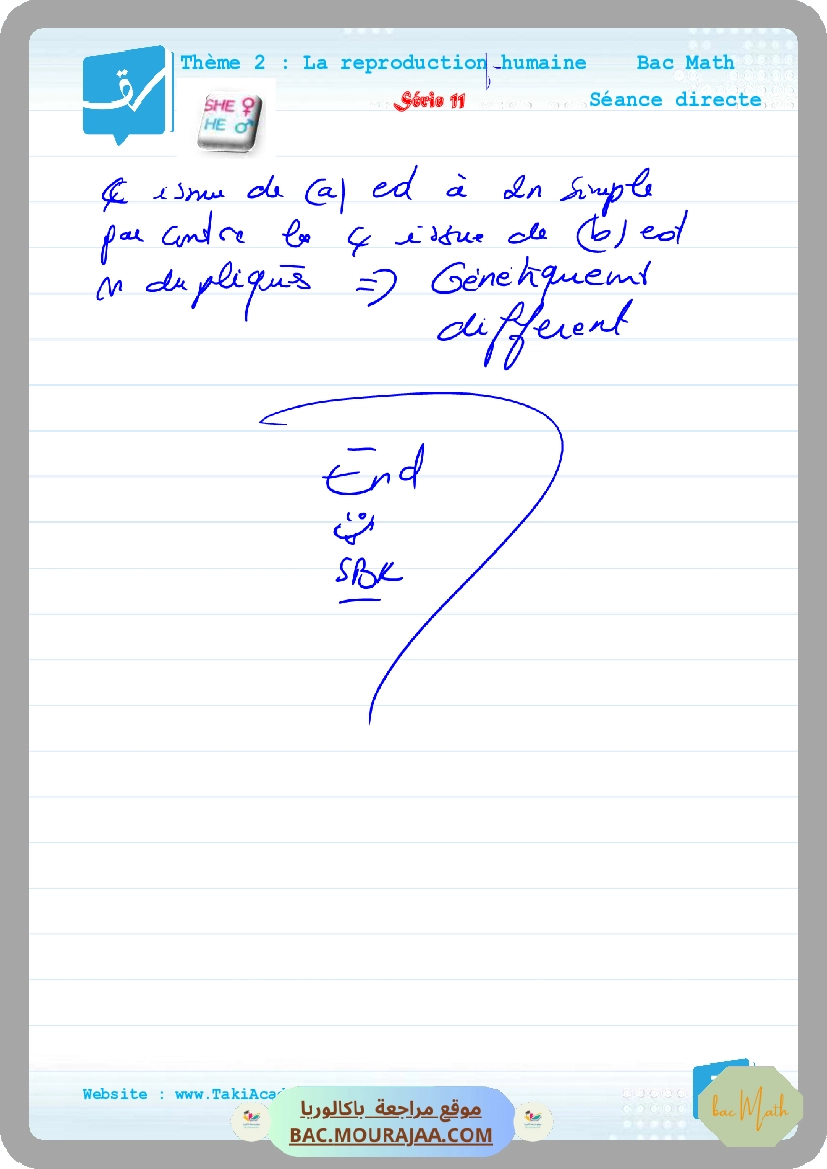 Thème 2 : La reproduction humaine Bac Math
SHE ♀
HE ♂
Série 11
Séance directe
issue de (a) est à 2n simple
par contre la ¢ issue de (b) est
n dupliqués => Génétiquemt
different
End
SBK
Website : www.TakiAcad
موقع مراجعة باكالوريا
BAC.MOURAJAA.COM
bac Math